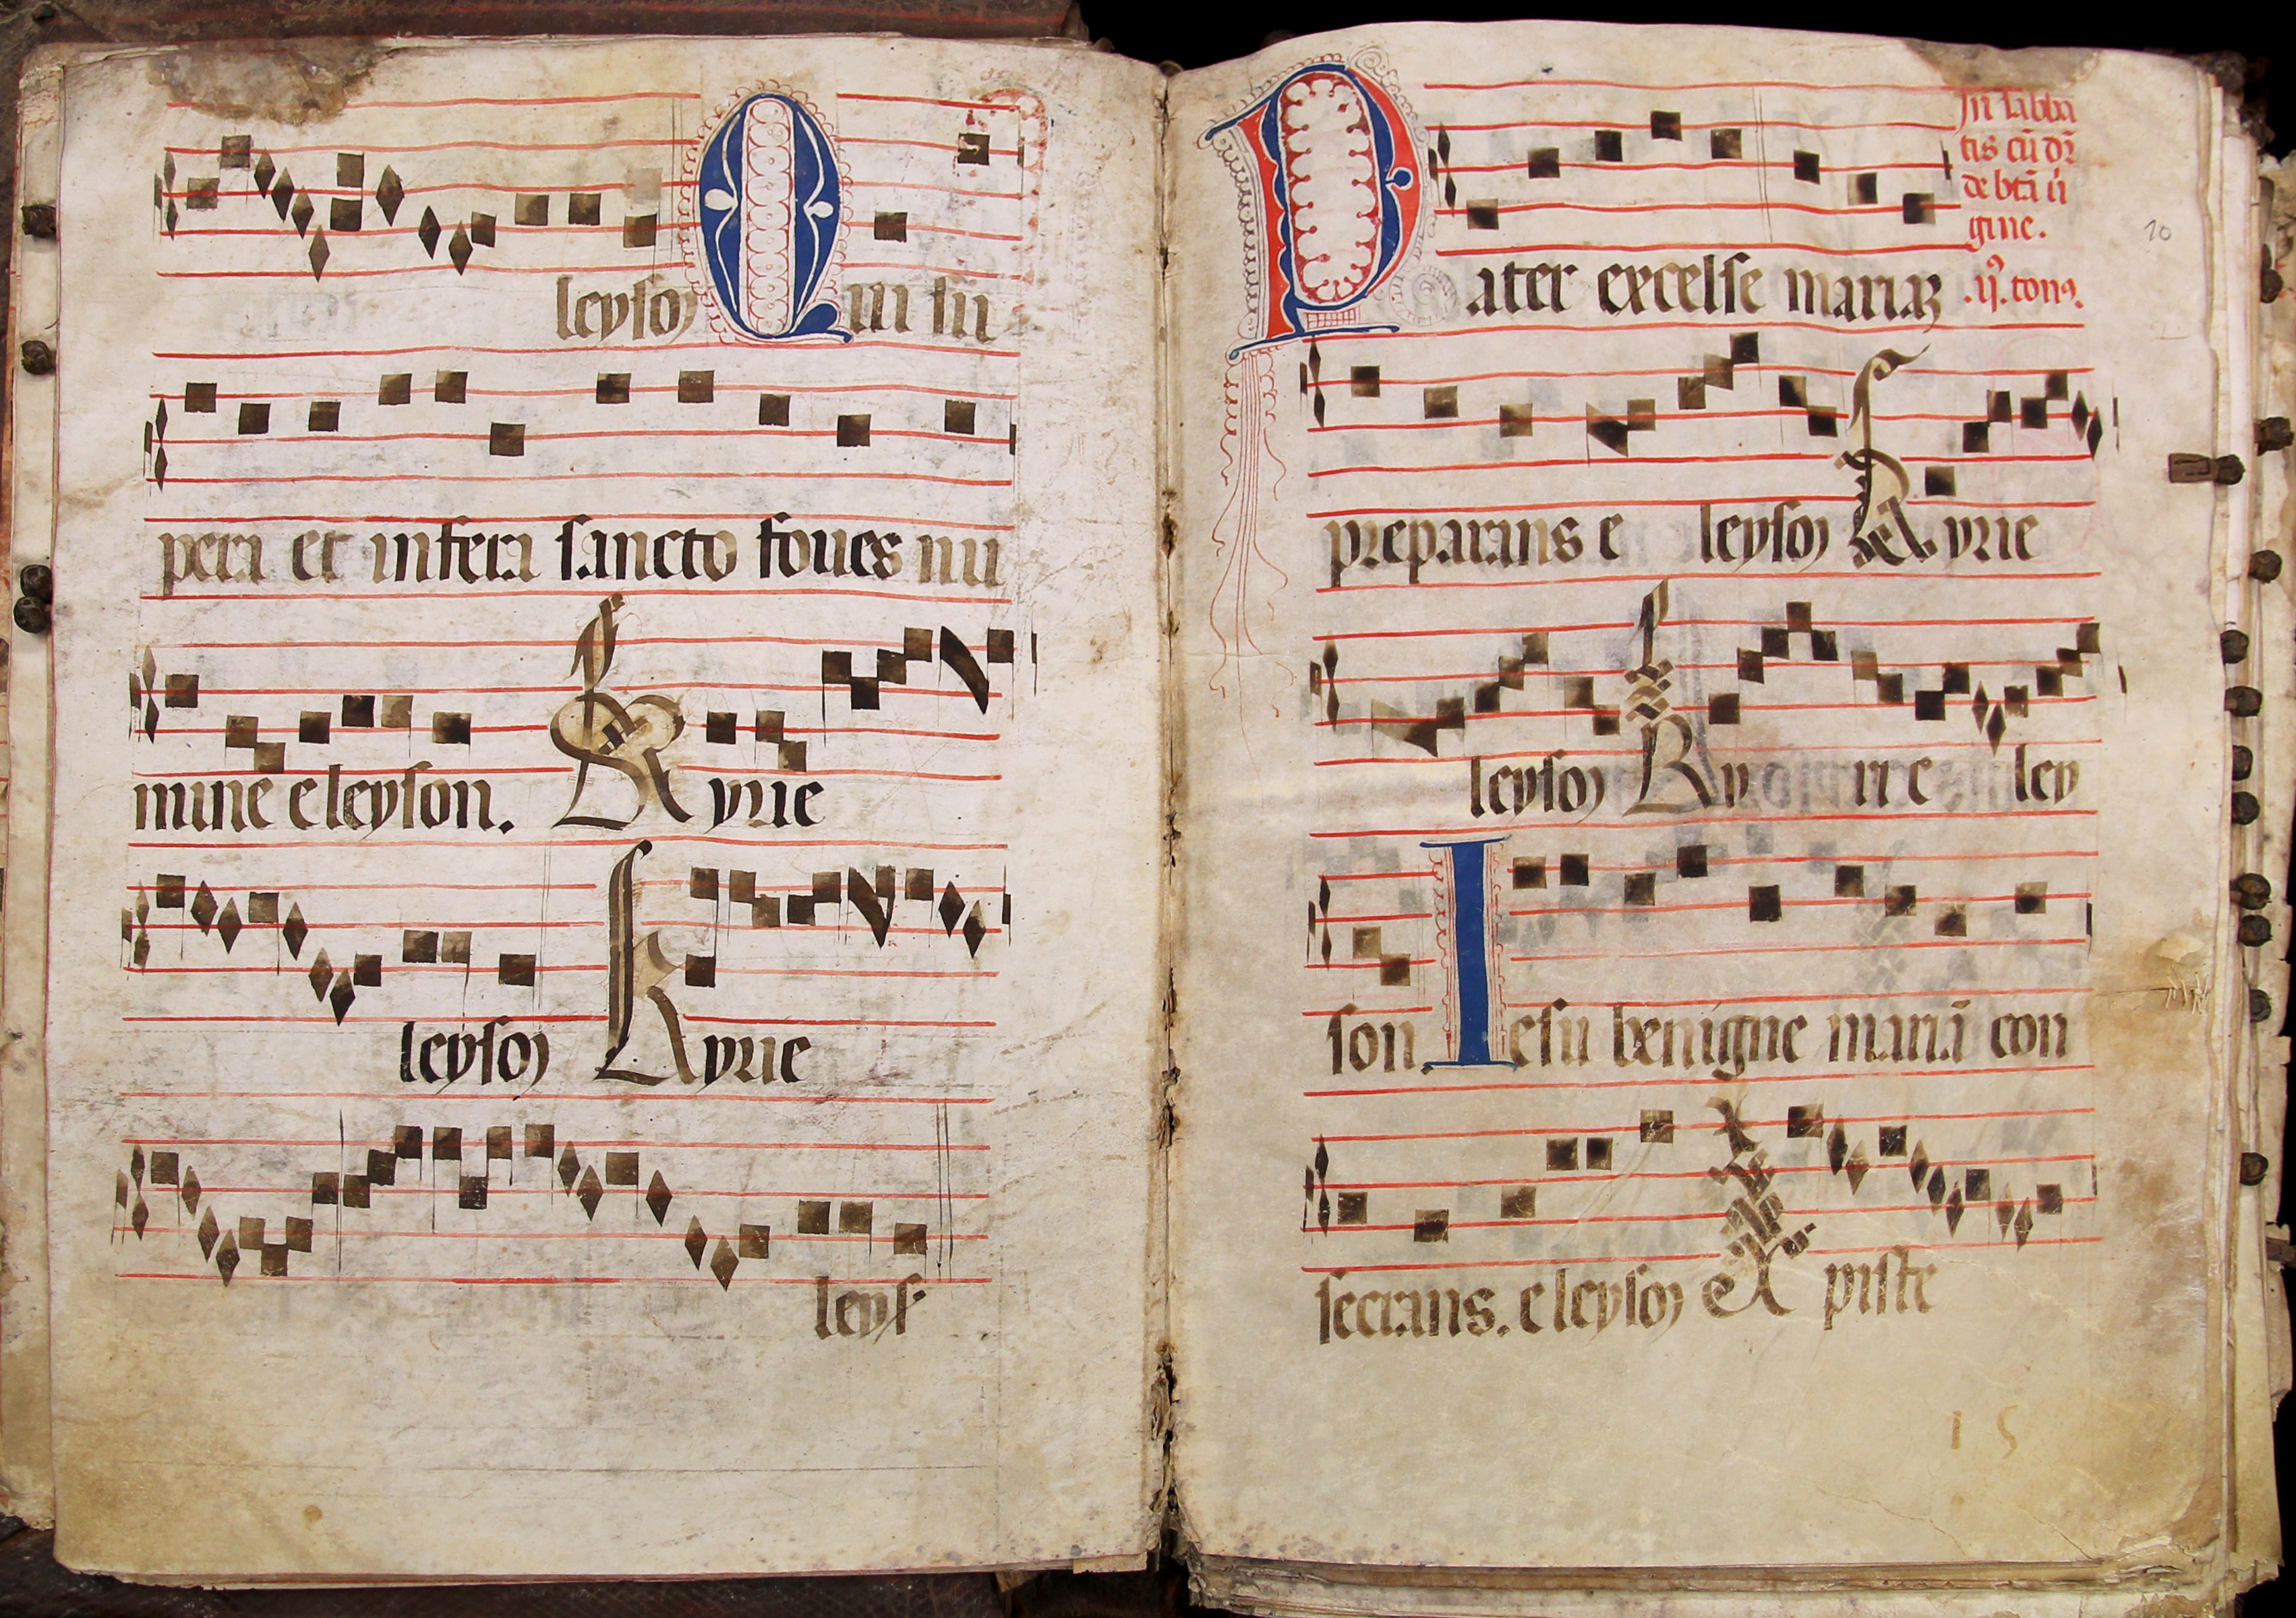 leyson Qui su
pera et infera sancto foues nu
mine eleyson. Kyrie
leyson Kyrie
leys
In sabba
tis cū dr̄
de btā ui
gine.
.ij. tonꝰ.
Pater excelse mariaꝫ
preparans e leyson Kyrie
leyson Ky rie ley
son. Iesu benigne mariā con
secrans. eleyson Xpiste
20
15